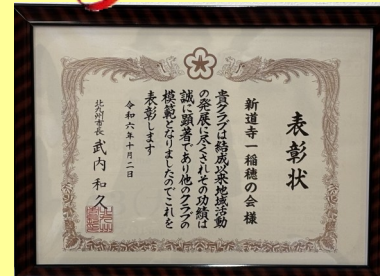 表彰状
新道寺一稲穂の会様
貴クラブは結成以来地域活動
の発展に尽くされその功績は
誠に顕著であり他のクラブの
模範となりましたのでこれを
表彰します
令和六年十月二日
北九州市長 武内和久